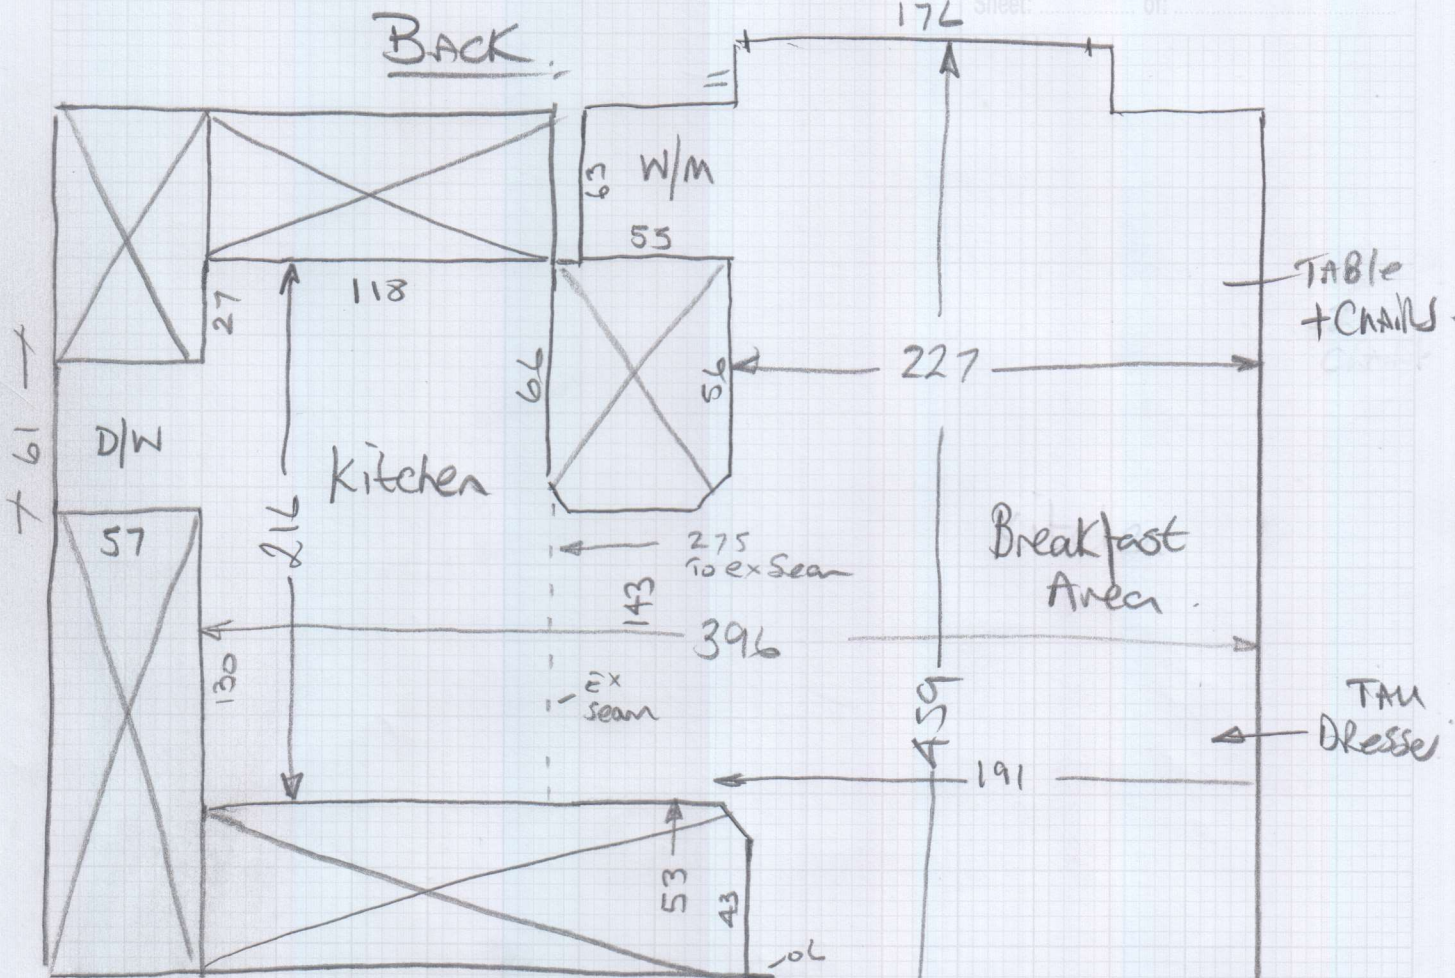 Sheet: of:
176
BACK.
11
63
W/M
55
118
27
TABle
+ ChAIRS.
66
56
227
61
D/W
Kitchen
216
57
275
To ex Seam
Breakfast
Area.
143
396
130
Ex
Seam
459
TAll
DResser
191
53
43